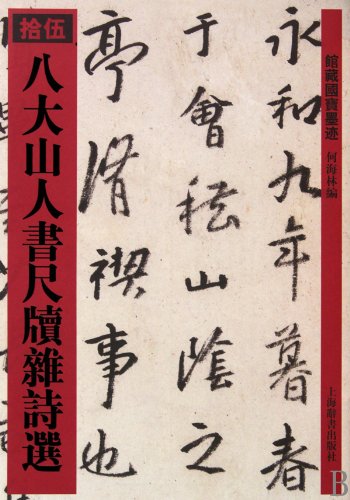 館藏國寶墨迹
何海林編
上海辭書出版社
永和九年暮春
于會稽山陰之
亭脩禊事也
拾伍
八大山人書尺牘雜詩選
B